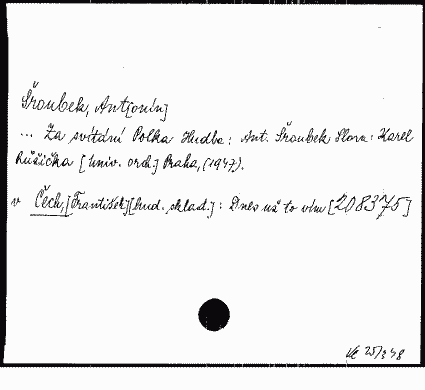 Šroubek, Ant[onín]
... Za svítání Polka Hudba: Ant. Šroubek Slova: Karel
Růžička [Univ. orch.] Praha, (1947).
v Čech, [František] [hud. sklad.]: Dnes už to vím [208375]
25/3 48